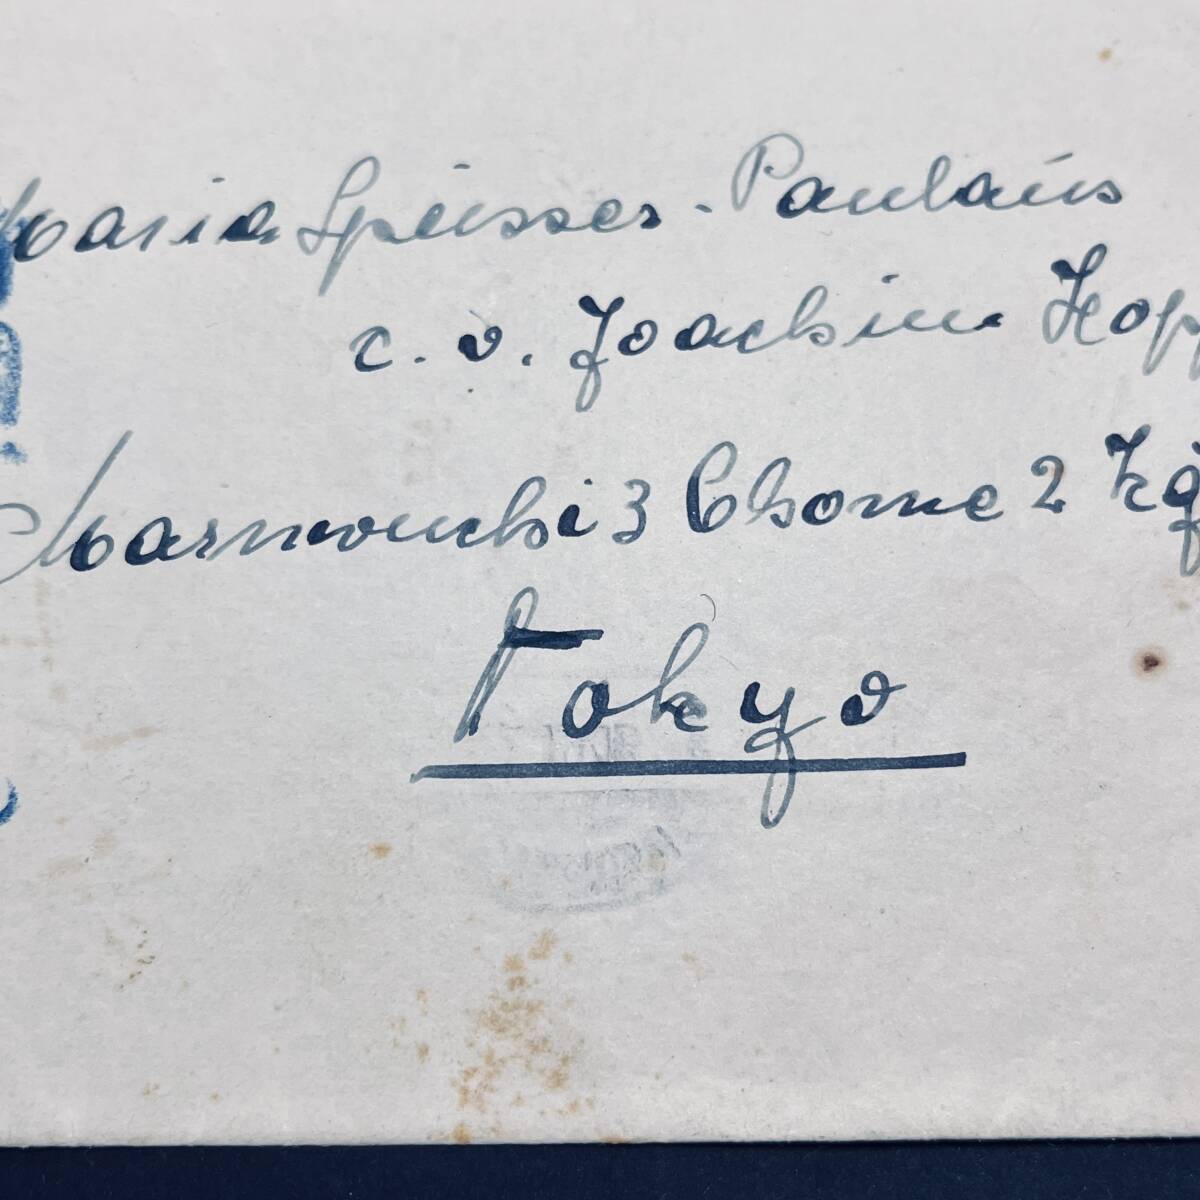 Maria Spiesser-Paulaüs
c. o. Joachim Kopp
Marnouchi 3 Chome 2
Tokyo